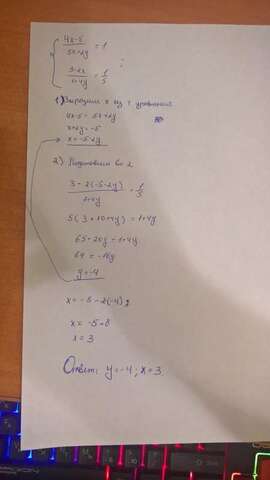 (4x-5)/(5x+2y) = 1
(3-2x)/(1+4y) = 1/5 ;
1) Выразим x из 1 уравнения
4x-5 = 5x+2y
x+2y = -5
x = -5-2y
2) Подставим во 2
(3-2(-5-2y))/(1+4y) = 1/5
5(3+10+4y) = 1+4y
65+20y = 1+4y
64 = -16y
y = -4
x = -5-2(-4)
x = -5+8
x = 3
Ответ: y = -4; x = 3